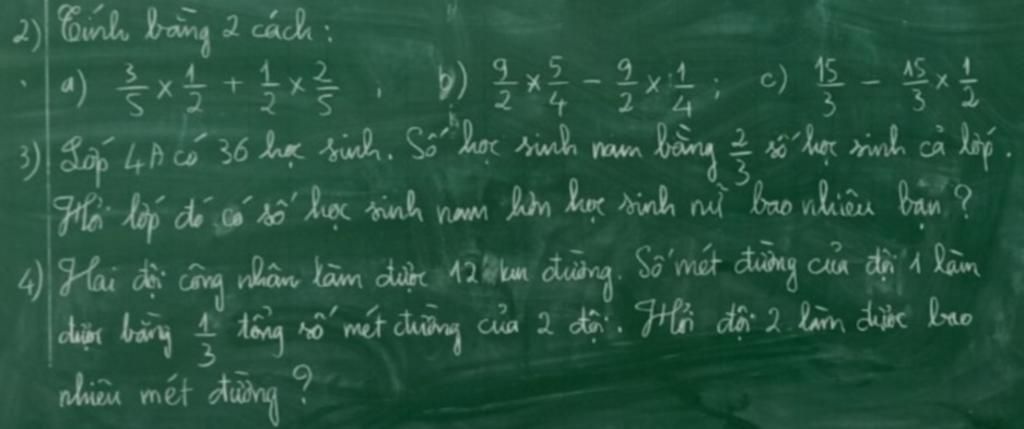 2) Tính bằng 2 cách:
a) 3/5 × 1/2 + 1/2 × 2/5 , b) 9/2 × 5/4 - 9/2 × 1/4 ; c) 15/3 - 15/3 × 1/2
3) Lớp 4A có 36 học sinh. Số học sinh nam bằng 2/3 số học sinh cả lớp.
Hỏi lớp đó có số học sinh nam hơn học sinh nữ bao nhiêu bạn ?
4) Hai đội công nhân làm được 12 km đường. Số mét đường của đội 1 làm
được bằng 1/3 tổng số mét đường của 2 đội. Hỏi đội 2 làm được bao
nhiêu mét đường ?